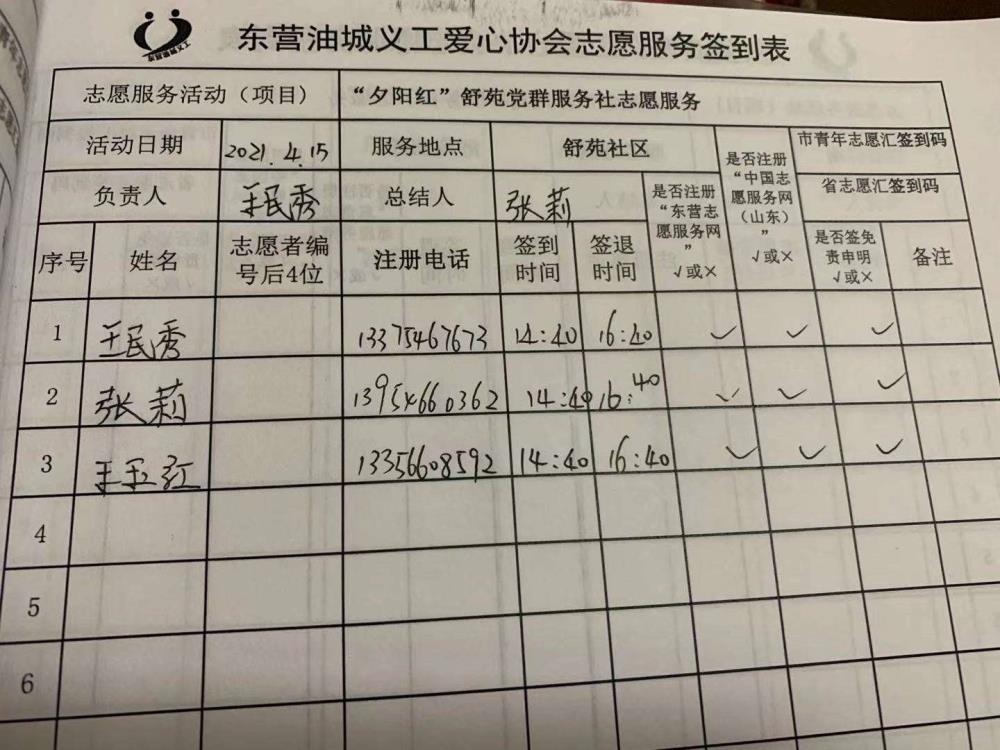 东营油城义工爱心协会志愿服务签到表
东营油城义工
志愿服务活动（项目） “夕阳红”舒苑党群服务社志愿服务
活动日期 2021.4.15 服务地点 舒苑社区
负责人 王民秀 总结人 张莉
是否注册“东营志愿服务网” √或×
是否注册“中国志愿服务网（山东）” √或×
市青年志愿汇签到码
省志愿汇签到码
序号 姓名 志愿者编号后4位 注册电话 签到时间 签退时间 是否签免责申明 √或× 备注
1 王民秀 13375467673 14:40 16:40 ✓ ✓ ✓
2 张莉 13954660362 14:40 16:40 ✓ ✓ ✓
3 王玉红 13356608592 14:40 16:40 ✓ ✓ ✓
4
5
6